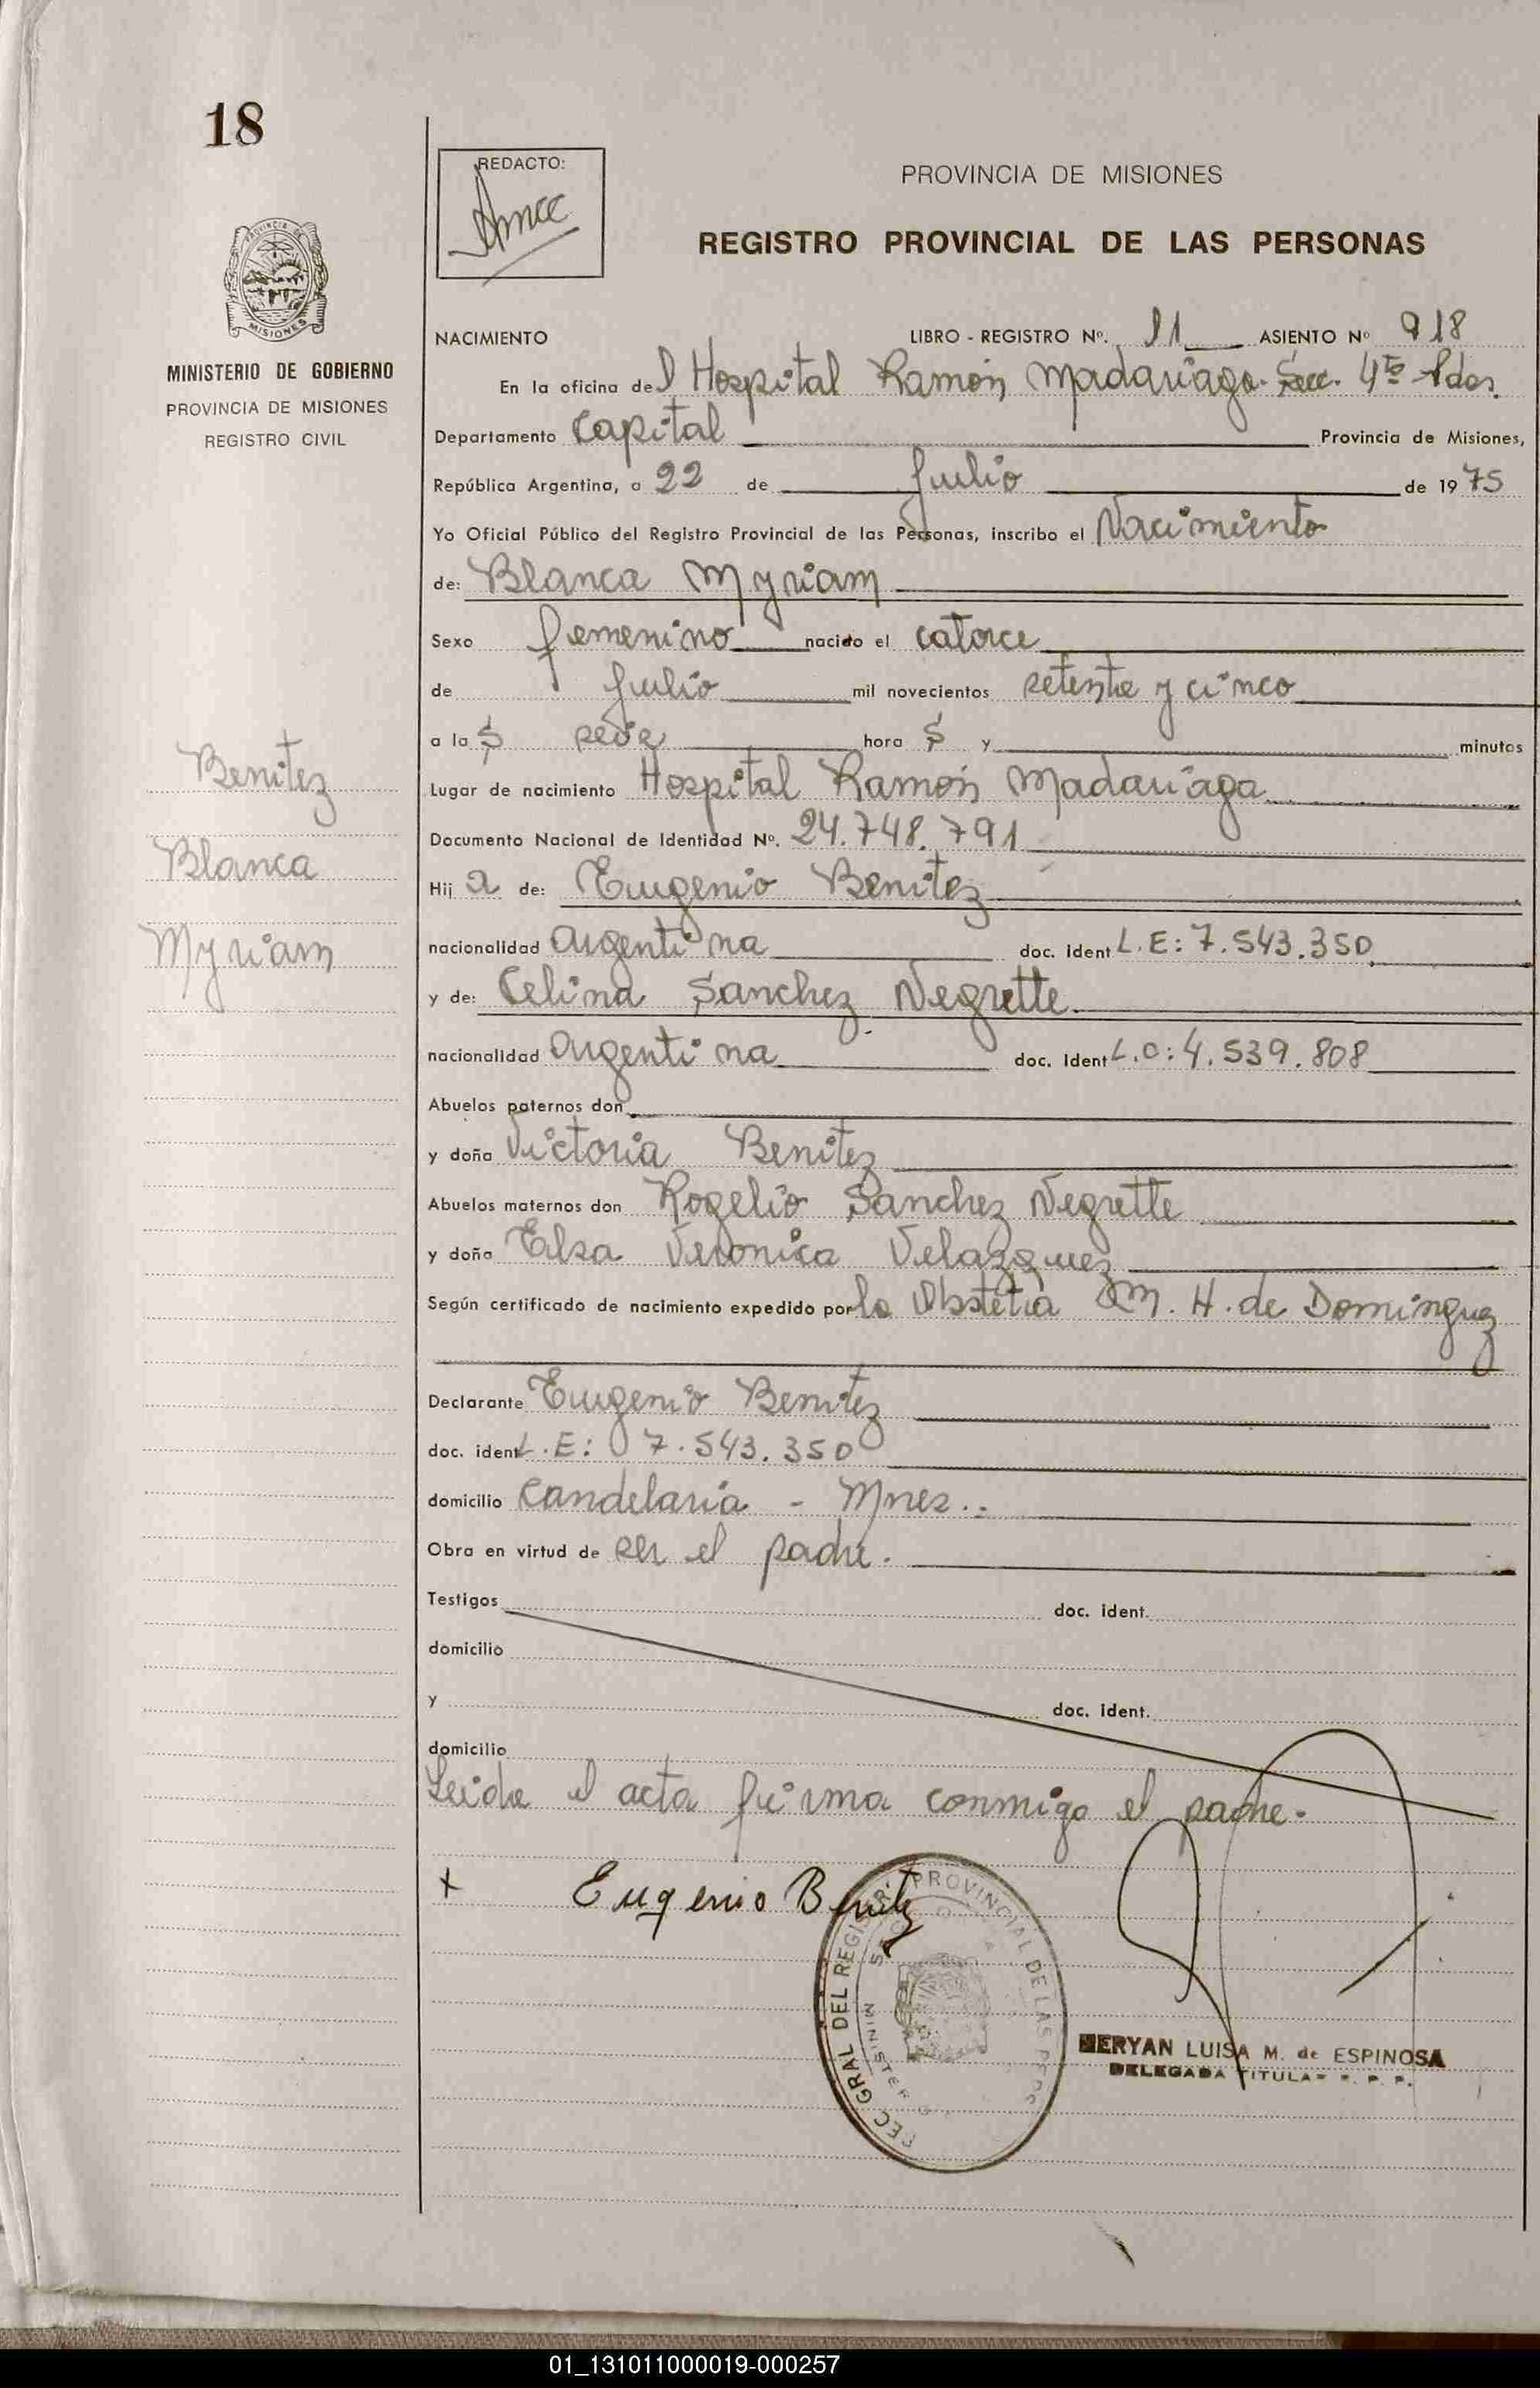 18
REDACTO:
PROVINCIA DE MISIONES
REGISTRO PROVINCIAL DE LAS PERSONAS
PROVINCIA DE
MISIONES
MINISTERIO DE GOBIERNO
PROVINCIA DE MISIONES
REGISTRO CIVIL
NACIMIENTO LIBRO - REGISTRO Nº. 11 ASIENTO Nº 918
En la oficina del Hospital Ramón Madariaga. Secc. 4ta Pdas.
Departamento Capital Provincia de Misiones,
República Argentina, a 22 de Julio de 1975
Yo Oficial Público del Registro Provincial de las Personas, inscribo el Nacimiento
de: Blanca Myriam
Sexo femenino nacido el catorce
de Julio mil novecientos setenta y cinco
a las seis horas y minutos
Lugar de nacimiento Hospital Ramón Madariaga
Documento Nacional de Identidad Nº. 24.748.791
Hija de: Eugenio Benitez
nacionalidad argentina doc. ident L.E: 7.543.350
y de: Celina Sanchez Negrette
nacionalidad argentina doc. ident L.C: 4.539.808
Abuelos paternos don
y doña Victoria Benitez
Abuelos maternos don Rogelio Sanchez Negrette
y doña Elsa Veronica Velazquez
Según certificado de nacimiento expedido por la Obstetra M. H. de Dominguez
Declarante Eugenio Benitez
doc. ident L.E: 7.543.350
domicilio Candelaria - Mnes..
Obra en virtud de ser el padre.
Testigos doc. ident.
domicilio
y doc. ident.
domicilio
Leida el acta firma conmigo el padre.
+ Eugenio Benitez
Benitez
Blanca
Myriam
GRAL DEL REGISTRO PROVINCIAL DE LAS PERS
MINISTERIO
MERYAN LUISA M. de ESPINOSA
DELEGADA TITULAR R. P. P.
01_131011000019-000257